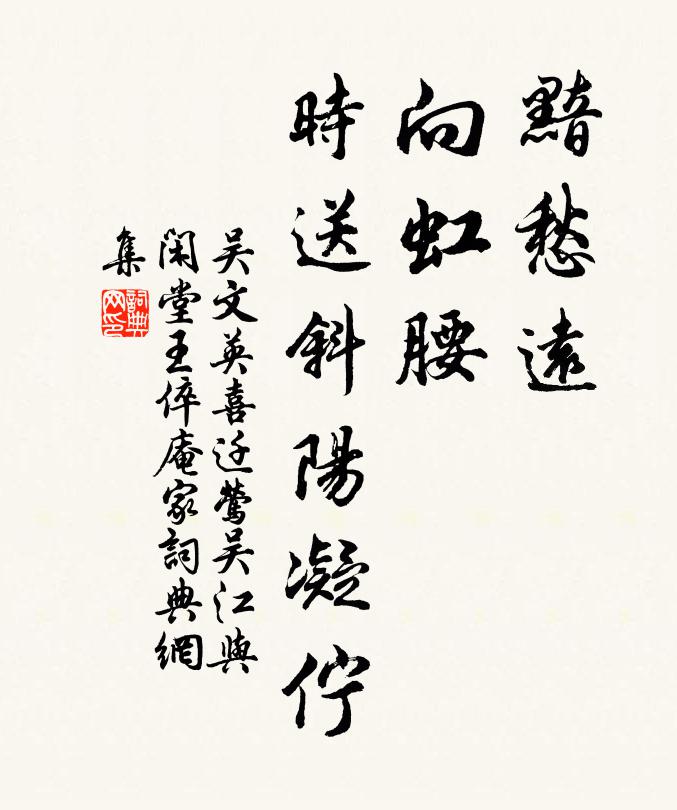 黯愁遠
向虹腰
時送斜陽凝佇
吴文英喜迁鶯吴江與
閑堂王倅庵家詞典網
集
詞典
网印